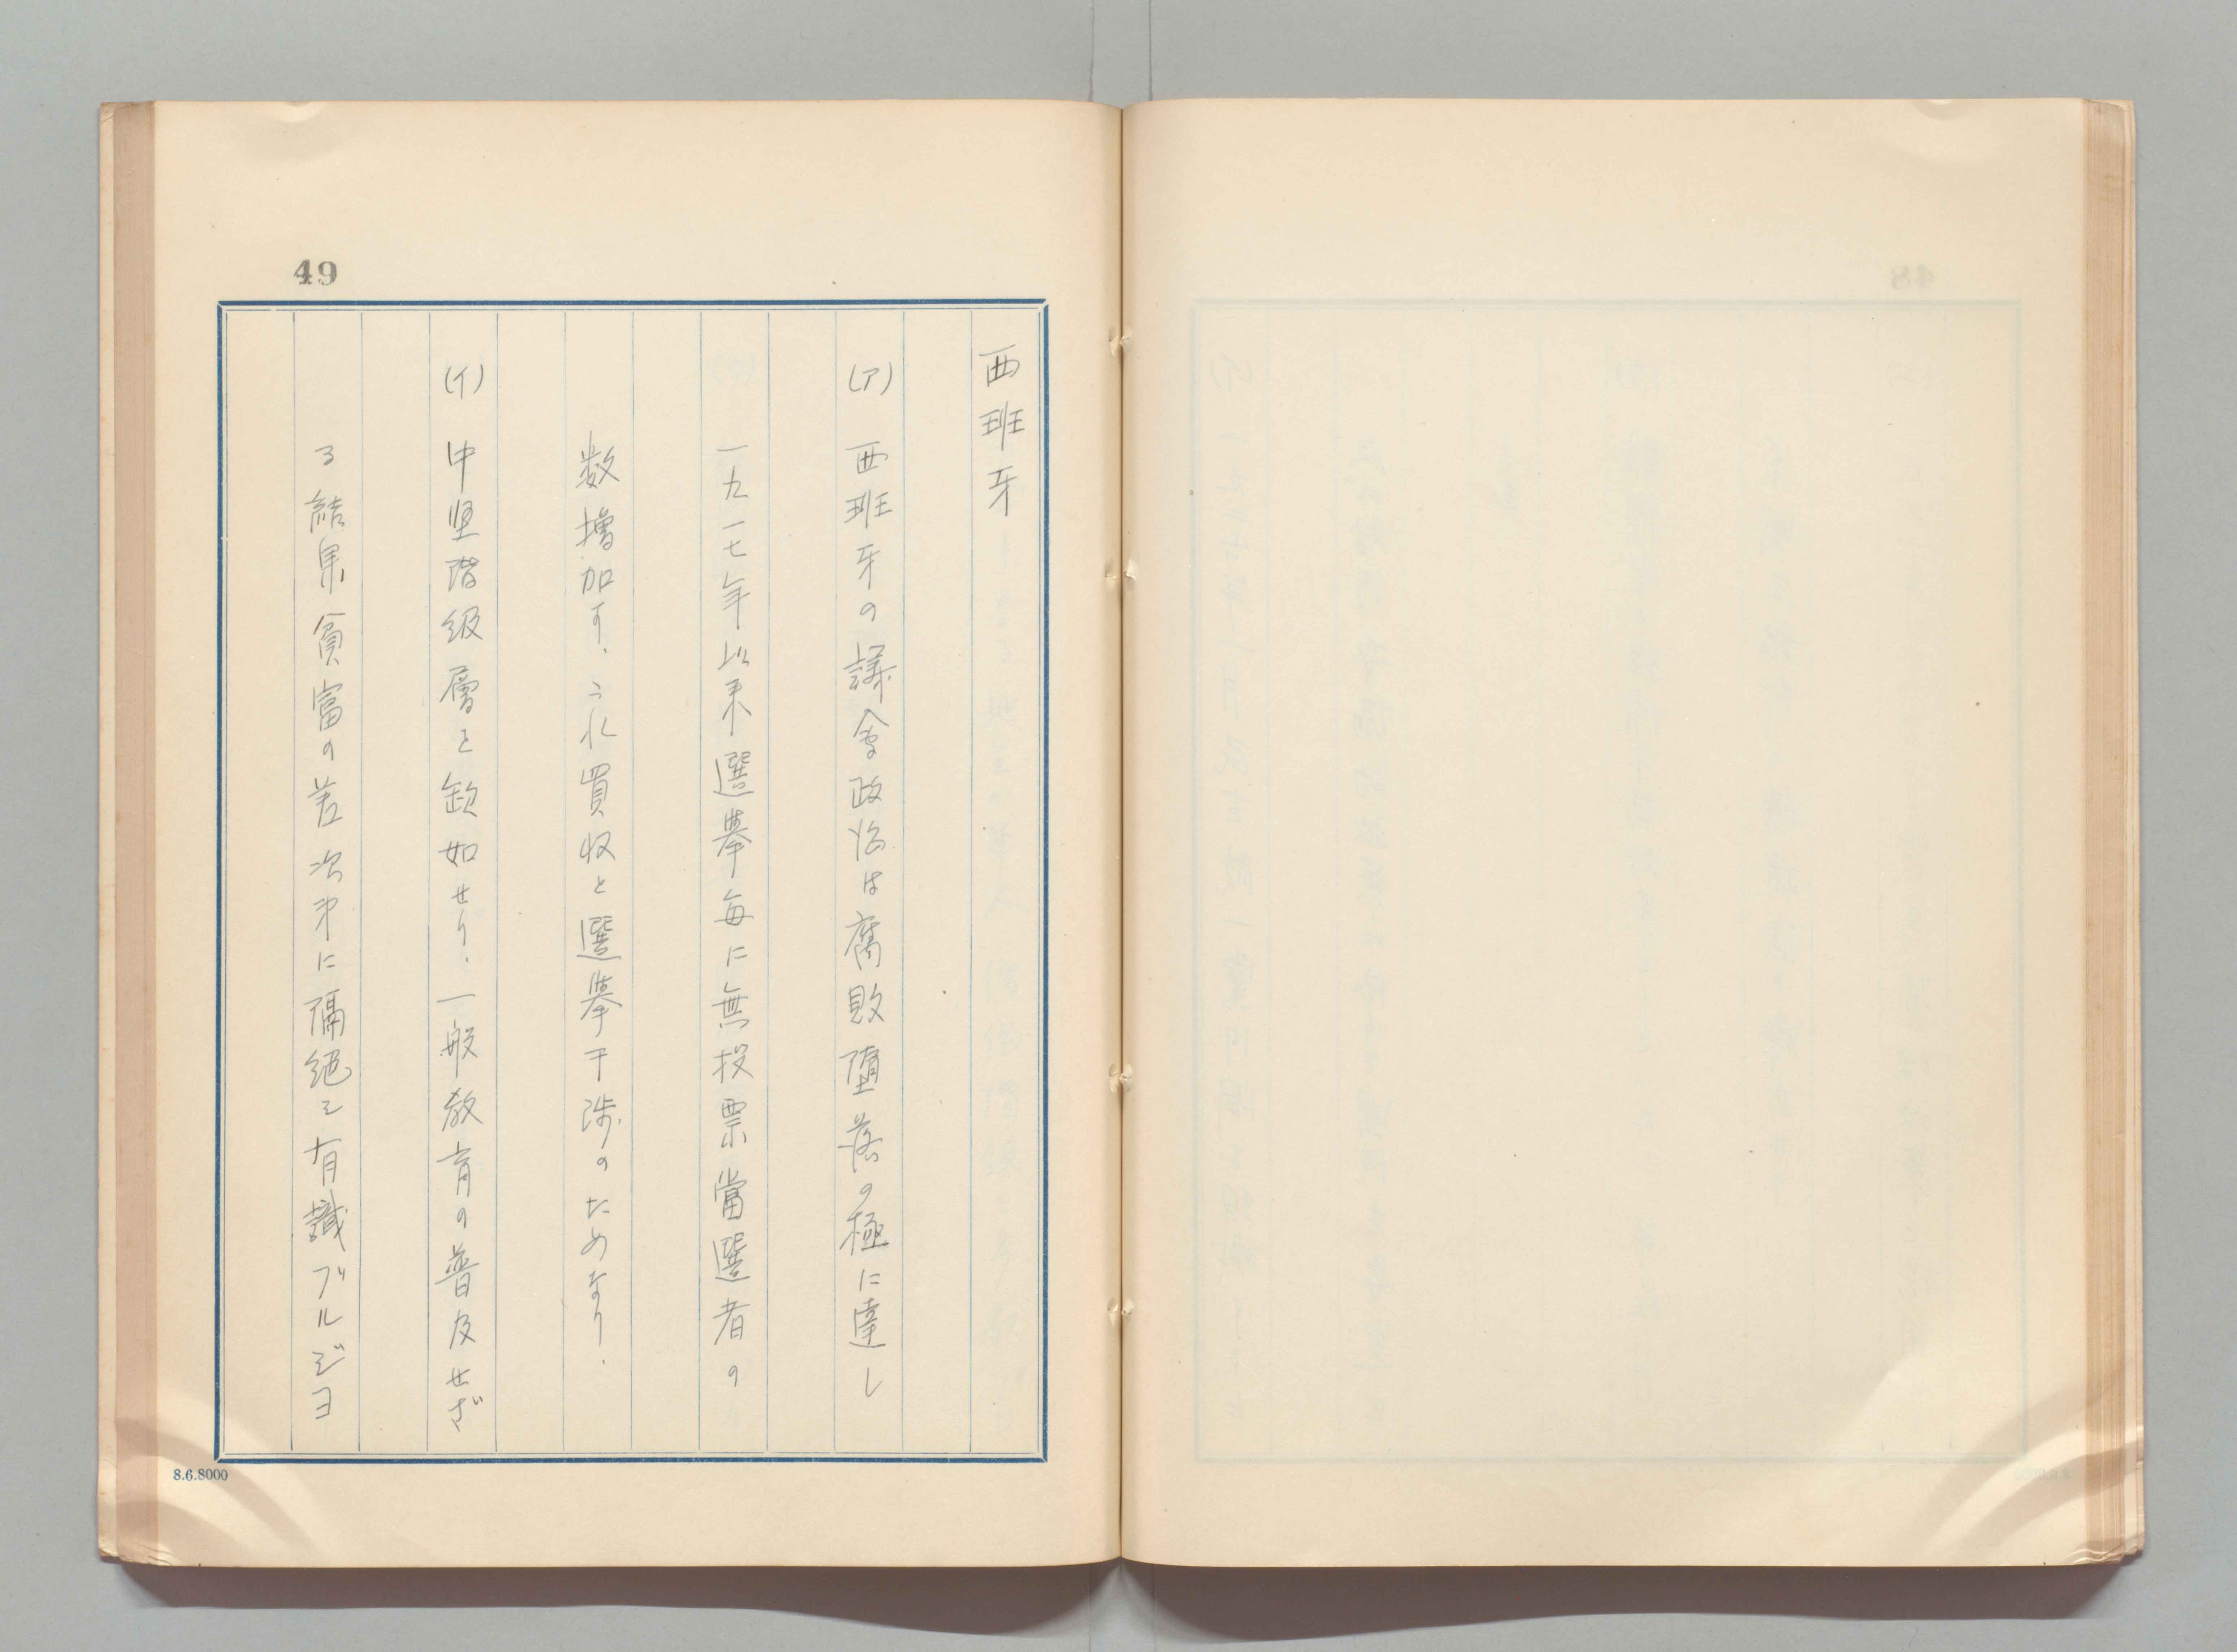 49
西班牙
(ア) 西班牙の議會政治は腐敗堕落の極に達し
一九一七年以来選挙毎に無投票當選者の
数増加す、これ買収と選挙干渉のためなり、
(イ) 中堅階級層を欽如せり、一般教育の普及せざ
る結果貧富の差次第に隔絶し有識ブルジヨ
8.6.8000